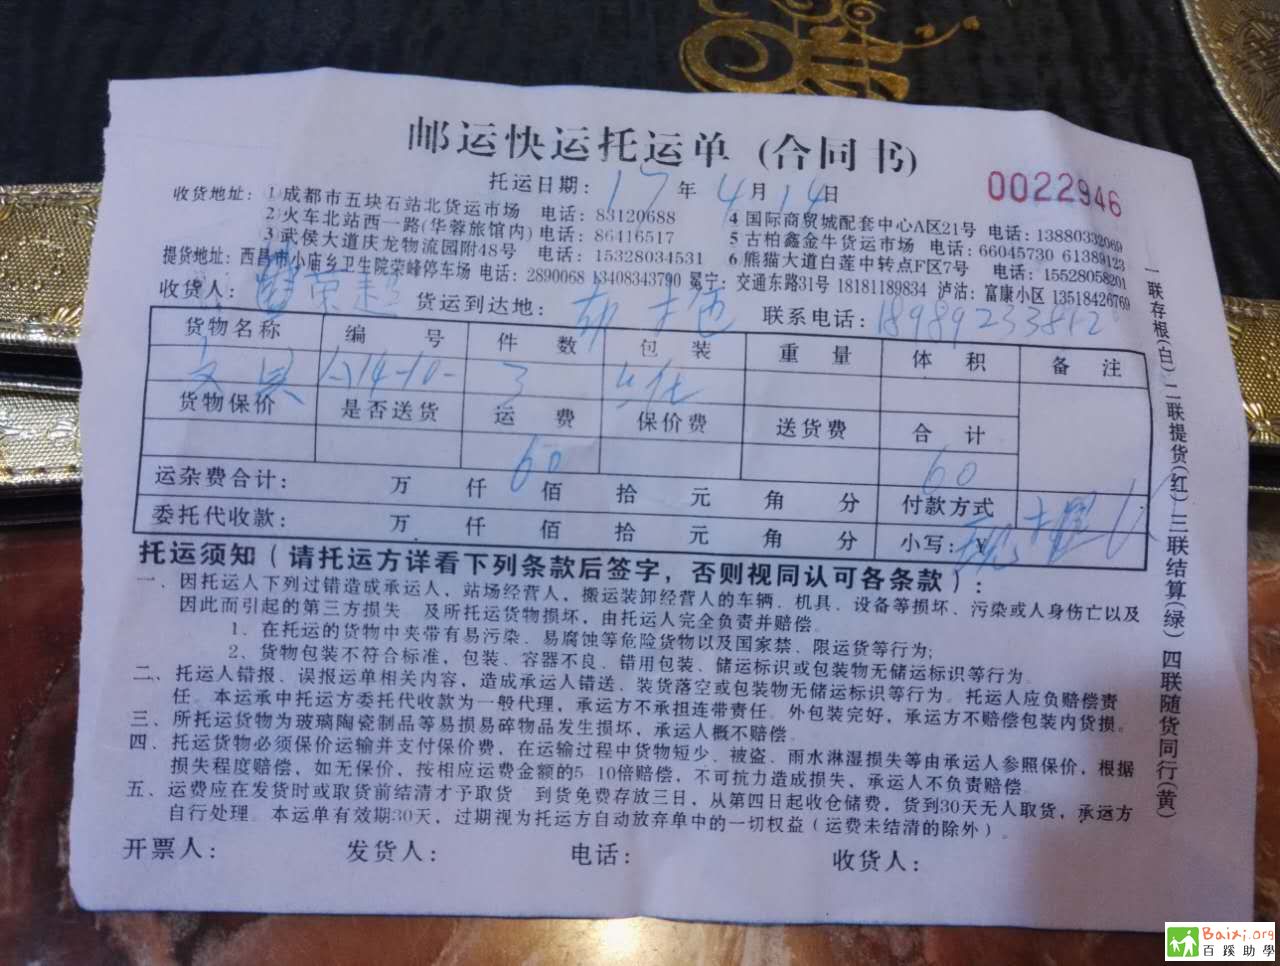 邮运快运托运单 (合同书)
托运日期: 17 年 4 月 14 日
0022946
收货地址: 1 成都市五块石站北货运市场 电话: 83120688 4 国际商贸城配套中心A区21号 电话: 13880332069
2 火车北站西一路(华蓉旅馆内) 电话: 86416517 5 古柏鑫金牛货运市场 电话: 66045730 61389123
3 武侯大道庆龙物流园附48号 电话: 15328034531 6 熊猫大道白莲中转点F区7号 电话: 15528058201
提货地址: 西昌市小庙乡卫生院荣峰停车场 电话: 2890068 13408343790 冕宁: 交通东路31号 18181189834 泸沽: 富康小区 13518426769
收货人: 荣超 货运到达地: 联系电话: 18989233812
货物名称 编 号 件 数 包 装 重 量 体 积 备 注
文具 14-10- 3
货物保价 是否送货 运 费 保价费 送货费 合 计
60 60
运杂费合计: 万 仟 佰 拾 元 角 分 付款方式
委托代收款: 万 仟 佰 拾 元 角 分 小写: ¥
托运须知 (请托运方详看下列条款后签字, 否则视同认可各条款):
一、因托运人下列过错造成承运人, 站场经营人, 搬运装卸经营人的车辆、机具、设备等损坏、污染或人身伤亡以及
因此而引起的第三方损失 及所托运货物损坏, 由托运人完全负责并赔偿。
1、在托运的货物中夹带有易污染、易腐蚀等危险货物以及国家禁、限运货等行为;
2、货物包装不符合标准, 包装、容器不良、错用包装、储运标识或包装物无储运标识等行为。
二、托运人错报、误报运单相关内容, 造成承运人错送、装货落空或包装物无储运标识等行为。托运人应负赔偿责
任。本运承中托运方委托代收款为一般代理, 承运方不承担连带责任。外包装完好, 承运方不赔偿包装内货损。
三、所托运货物为玻璃陶瓷制品等易损易碎物品发生损坏, 承运人概不赔偿。
四、托运货物必须保价运输并支付保价费, 在运输过程中货物短少、被盗、雨水淋湿损失等由承运人参照保价, 根据
损失程度赔偿, 如无保价, 按相应运费金额的5-10倍赔偿, 不可抗力造成损失, 承运人不负责赔偿。
五、运费应在发货时或取货前结清才予取货 到货免费存放三日, 从第四日起收仓储费, 货到30天无人取货, 承运方
自行处理。本运单有效期30天, 过期视为托运方自动放弃单中的一切权益 (运费未结清的除外)。
开票人: 发货人: 电话: 收货人:
一联存根(白) 二联提货(红) 三联结算(绿) 四联随货同行(黄)
Baixi.org
百蹊助學